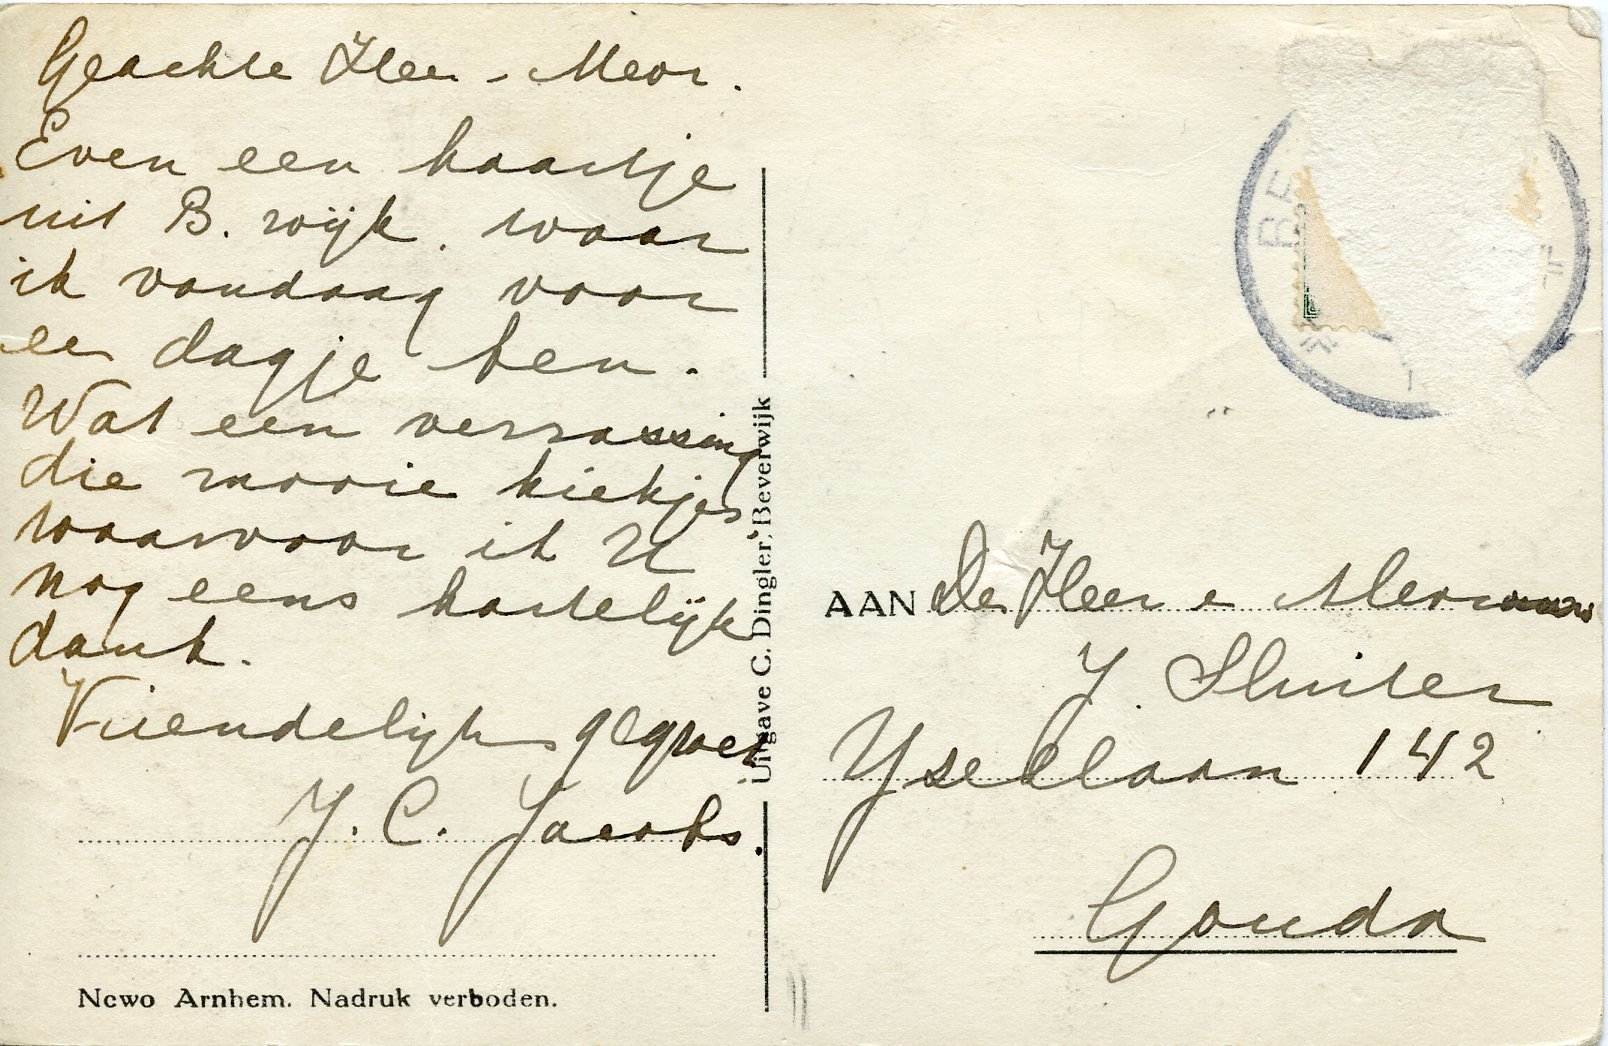 Geachte Heer - Mevr.
Even een kaartje
uit B. wijk. waar
ik vandaag voor
een dagje ben.
Wat een verrassing
die mooie kiekjes
waarvoor ik U
nog eens hartelijk
dank.
Vriendelijk gegroet
J. C. Jacobs.
Newo Arnhem. Nadruk verboden.
Uitgave C. Dingler, Beverwijk
BE
AAN De Heer e Mevrouw
J. Sluiter
Ysellaan 142
Gouda